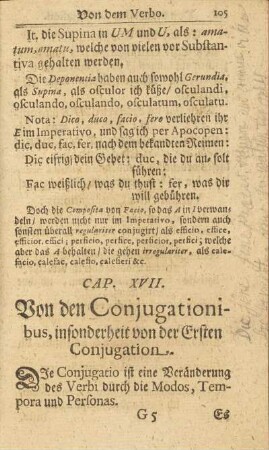 Von dem Verbo. 105
It, die Supina in UM und U, als: ama-
tum, amatu, welche von vielen vor Substan-
tiva gehalten werden,
Die Deponentia haben auch sowohl Gerundia,
als Supina, als osculor ich küsse/ osculandi,
osculando, osculando, osculatum, osculatu.
Nota: Dico, duco, facio, fero verliehren ihr
E im Imperativo, und sag ich per Apocopen:
dic, duc, fac, fer, nach dem bekandten Reimen:
Dic eifrig dein Gebet: duc, die du an solt
führen;
Fac weißlich/ was du thust: fer, was dir
will gebühren.
Doch die Composita von Facio, so das A in I verwan-
deln/ werden nicht nur im Imperativo, sondern auch
sonsten überall regulariter conjugirt/ als efficio, effice,
efficior, effici; perficio, perfice, perficior, perfici; welche
aber das A behalten/ die gehen irregulariter, als cale-
facio, calefac, calefio, calefieri &c.
CAP. XVII.
Von den Conjugationi-
bus, insonderheit von der Ersten
Conjugation.
Die Conjugatio ist eine Veränderung
des Verbi durch die Modos, Tem-
pora und Personas.
G 5 Es